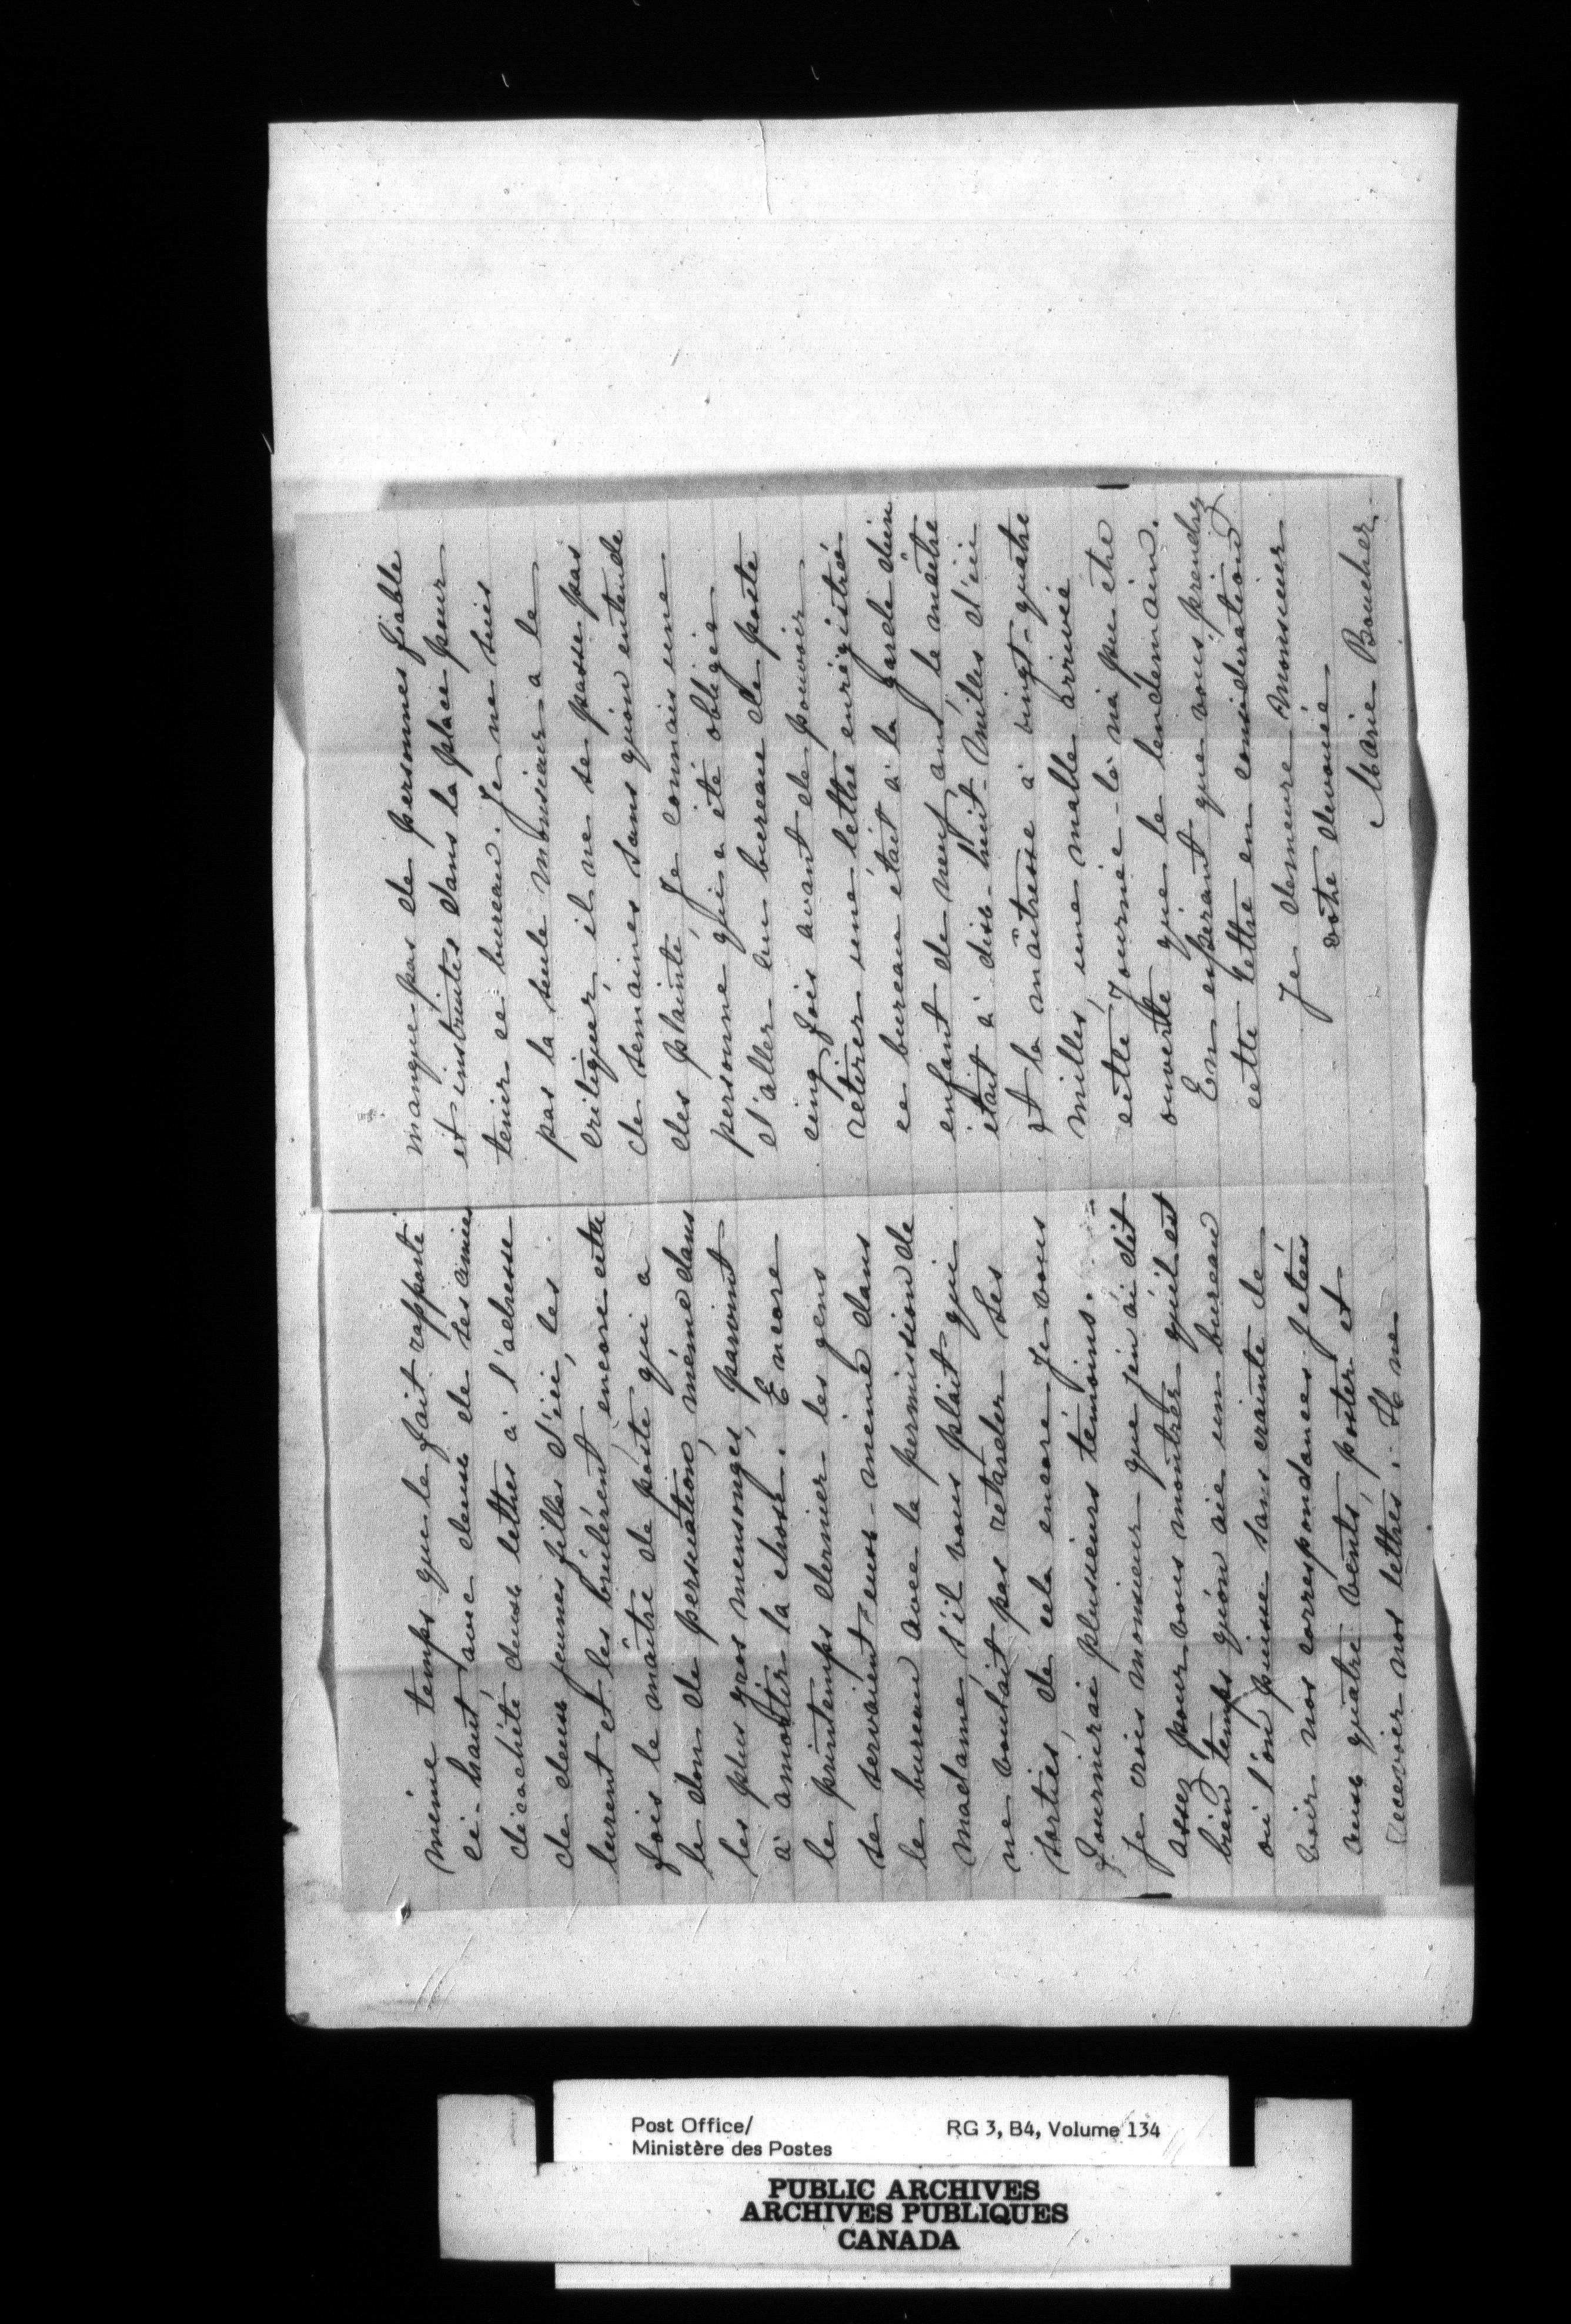 même temps que le fait rapporté
ci-haut, avec deux de ses amies
décachété deux lettres à l'adresse
de deux jeunes filles d'ici, les
lurent et les brulèrent, encore cette
fois le maître de poste qui a
le don de persuation, même dans
les plus gros mensonges, parvint
à amortir la chose. Encore
le printemps dernier les gens
se servaient eux-même dans
le bureau avec la permission de
madame, s'il vous plait qui
ne voulait pas retarder ses
sorties, de cela encore je vous
fournirai plusieurs témoins.
Je crois monsieur que j'en ai dit
assez pour vous montrer qu'il est
bien temps qu'on aie un bureau
où l'on puisse sans crainte de
voir nos correspondances jetées
aux quatre vents, poster et
recevoir nos lettres. Il ne
manque pas de personnes fiable
et instruites dans la place pour
tenir ce bureau. Je ne suis
pas la seule monsieur a le
critiquer, il ne se passe pas
de semaines sans qu'on entende
des plainte, Je connais une
personne qui a été obligée
d'aller au bureau de poste
cinq fois avant de pouvoir
retirer une lettre enrégistrée
ce bureau était à la garde d'un
enfant de neuf ans, le maître
était à dix-huit milles d'ici
et la maîtresse à vingt-quatre
milles, une malle arrivée
cette journée-là n'a pu être
ouverte que le lendemain.
En espérant que vous prendrez
cette lettre en considération
Je demeure monsieur
votre dévouée
Marie Boucher
Post Office/
Ministère des Postes
RG 3, B4, Volume 134
PUBLIC ARCHIVES
ARCHIVES PUBLIQUES
CANADA